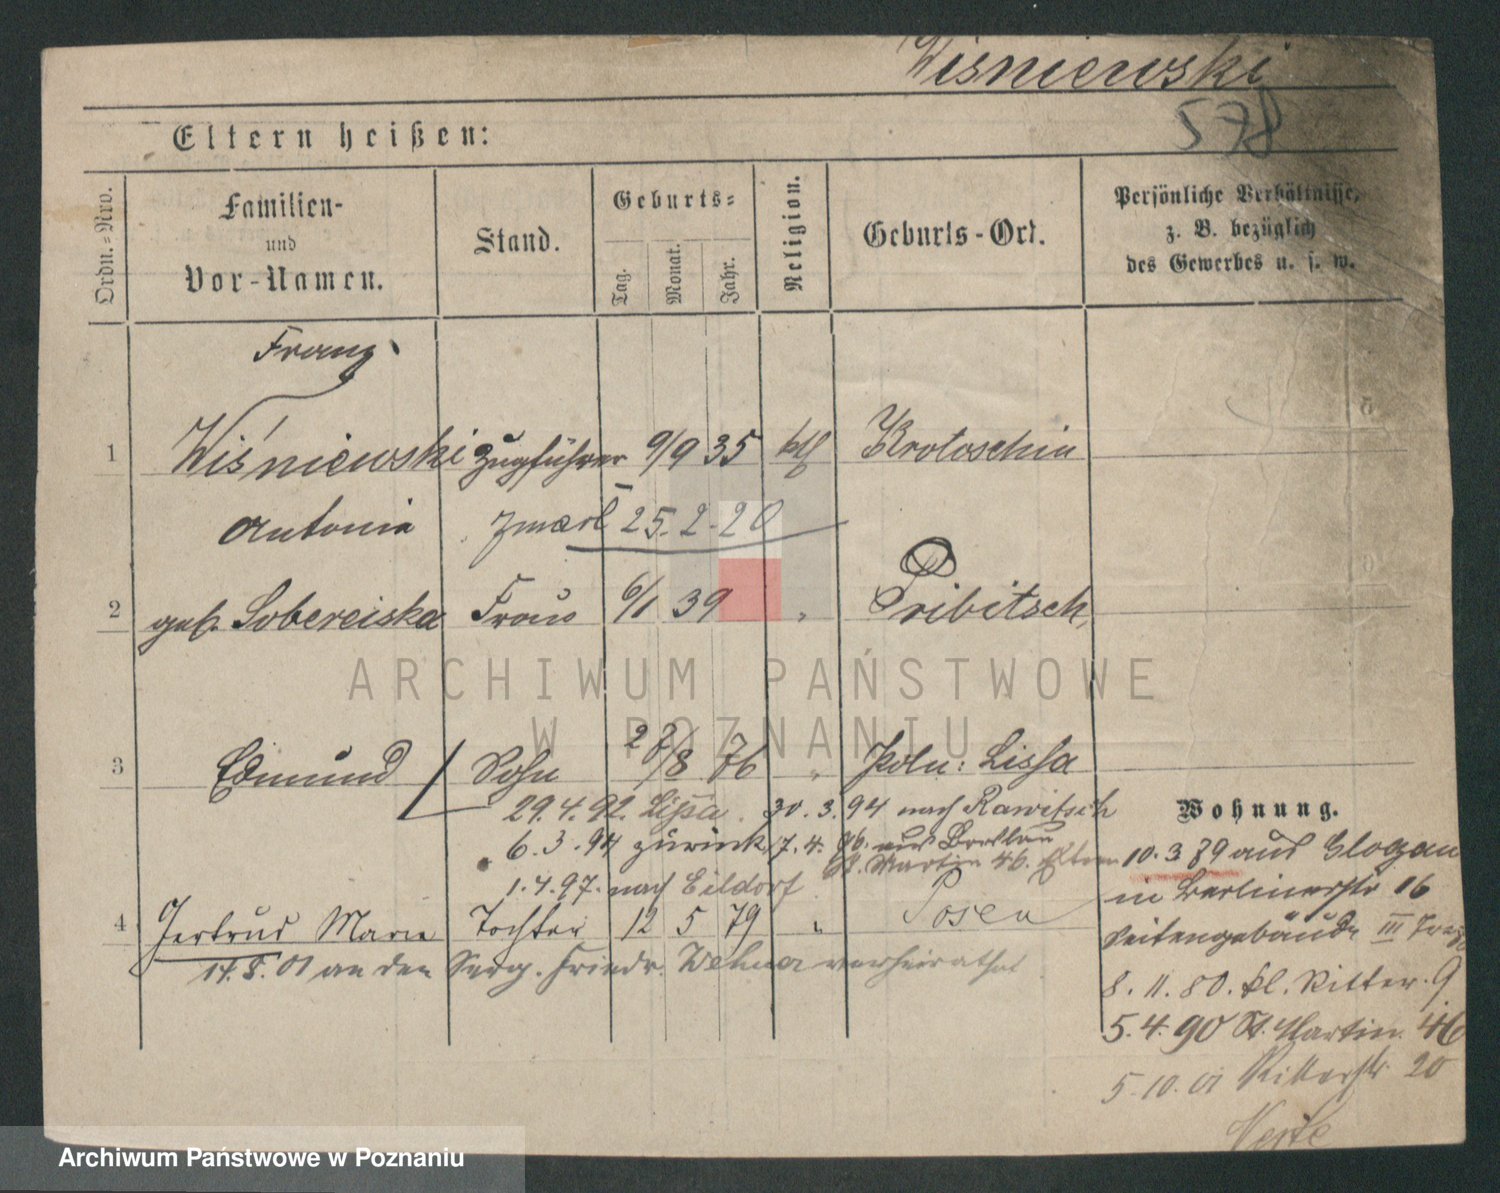 Wiśniewski
578
Eltern heißen:
Ordn.-Nro.
Familien-
und
Vor-Namen.
Stand.
Geburts-
Tag.
Monat.
Jahr.
Religion.
Geburts-Ort.
Persönliche Verhältnisse,
z. B. bezüglich
des Gewerbes u. s. w.
Franz
1 Wiśniewski Zugführer 9/9 35 ktl Krotoschin
Antonia zmarł 25.2.20
2 geb. Sobereiska Frau 6/1 39 " Pribitsch
3 Edmund Sohn 28/8 76 " Poln: Lissa
29.4.92. Lissa. 30.3.94 nach Rawitsch
6.3.94 zurück 7.4.96. aus Breslau
St. Martin 46. Eltern
1.4.97. nach
4 Gertrud Marie Tochter 12 5 79 " Posen
14.5.01 an den Serg. Friedr. verheirathet
Wohnung.
10.3 89 aus Glogau
in Berlinerstr 16
Seitengebäude III
8.11.80. kl. Ritter. 9
5.4.90 St. Martin. 46
5.10.01 Ritterstr. 20
ARCHIWUM PAŃSTWOWE
W POZNANIU
Archiwum Państwowe w Poznaniu